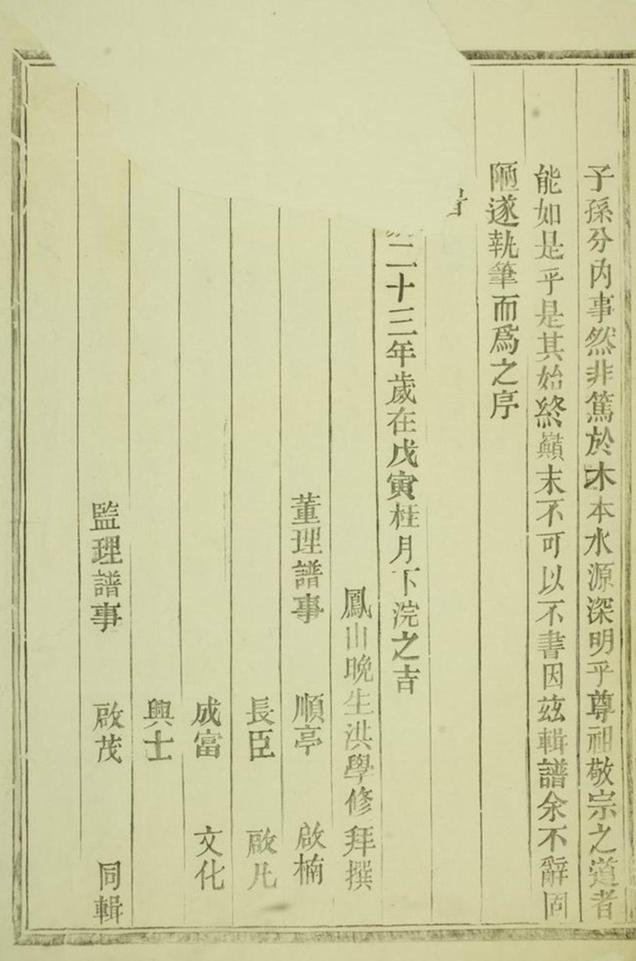 子孫分內事然非篤於木本水源深明乎尊祖敬宗之道者
能如是乎是其始終巔末不可以不書因茲輯譜余不辭固
陋遂執筆而爲之序
二十三年歲在戊寅桂月下浣之吉
鳳山晚生洪學修拜撰
董理譜事 順亭 啟楠
長臣 啟凡
成富 文化
興士
監理譜事 啟茂 同輯